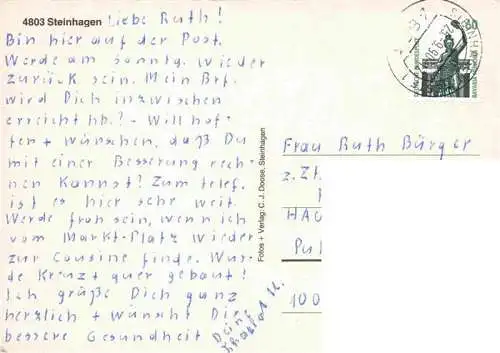 4803 Steinhagen
Liebe Ruth!
Bin hier auf der Post.
Werde am Sonntg. wieder
zurück sein. Mein Brf.
wird Dich inzwischen
erreicht hb.? - Will hof-
fen + wünschen, daß Du
mit einer Besserung rech-
nen kannst! Zum telef.
ist es hier sehr weit.
Werde froh sein, wenn ich
vom Markt-Platz wieder
zur Cousine finde. Wur-
de Kreuz + quer gebaut!
Ich grüße Dich ganz
herzlich + wünscht Die
bessere Gesundheit
Deine
Fotos + Verlag: C. J. Doose, Steinhagen
80
Frau Ruth Bürger
z. Zt.
HAU
Pul
100